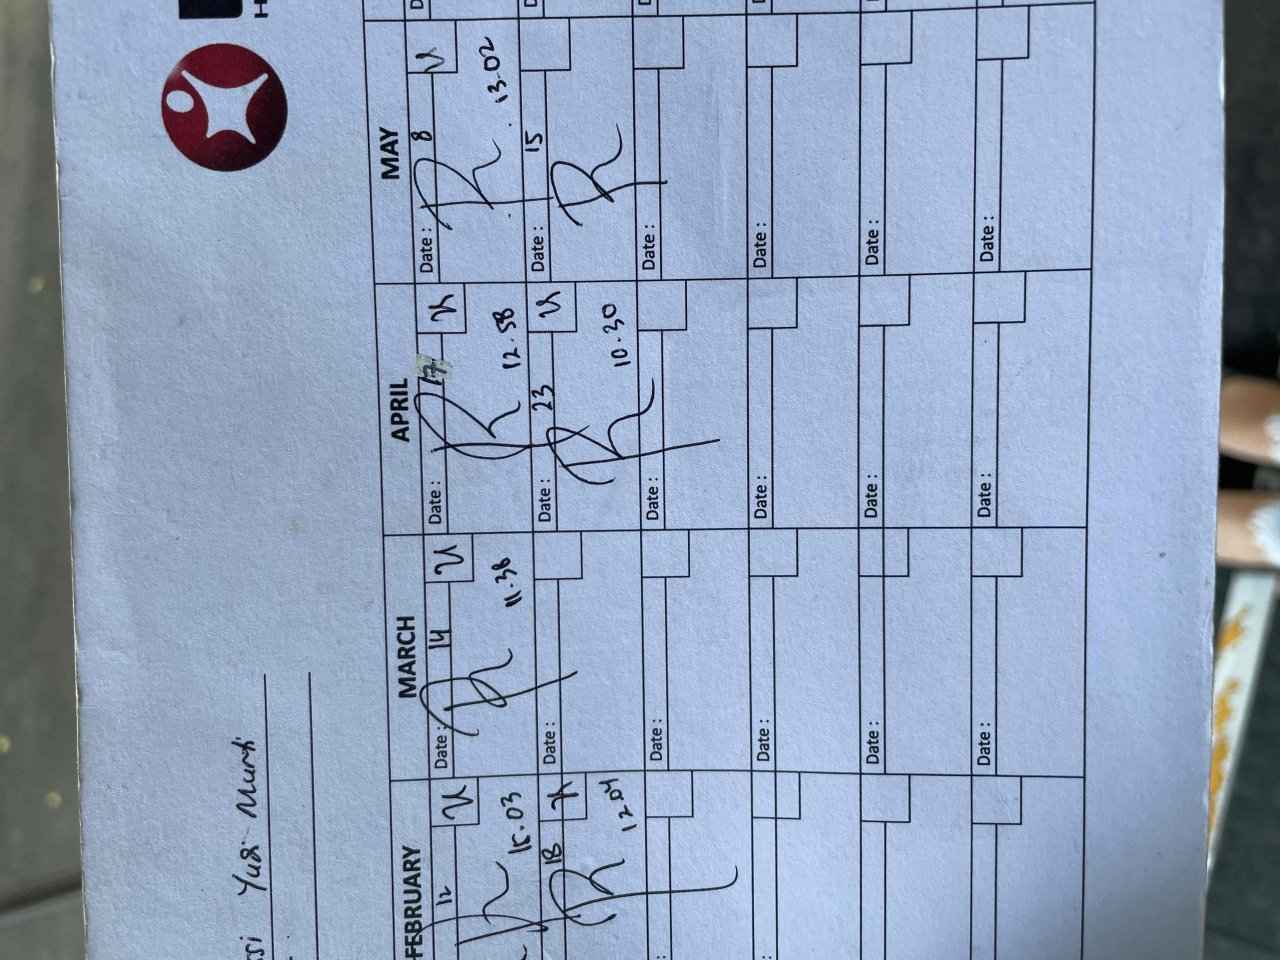 Yudi Murti
FEBRUARY MARCH APRIL MAY
12
15.03
Date : 14
11.38
Date : 17
12.58
Date : 8
13.02
18
12.04
Date :
Date : 23
10.30
Date : 15
Date :
Date :
Date :
Date :
Date :
Date :
Date :
Date :
Date :
Date :
Date :
Date :